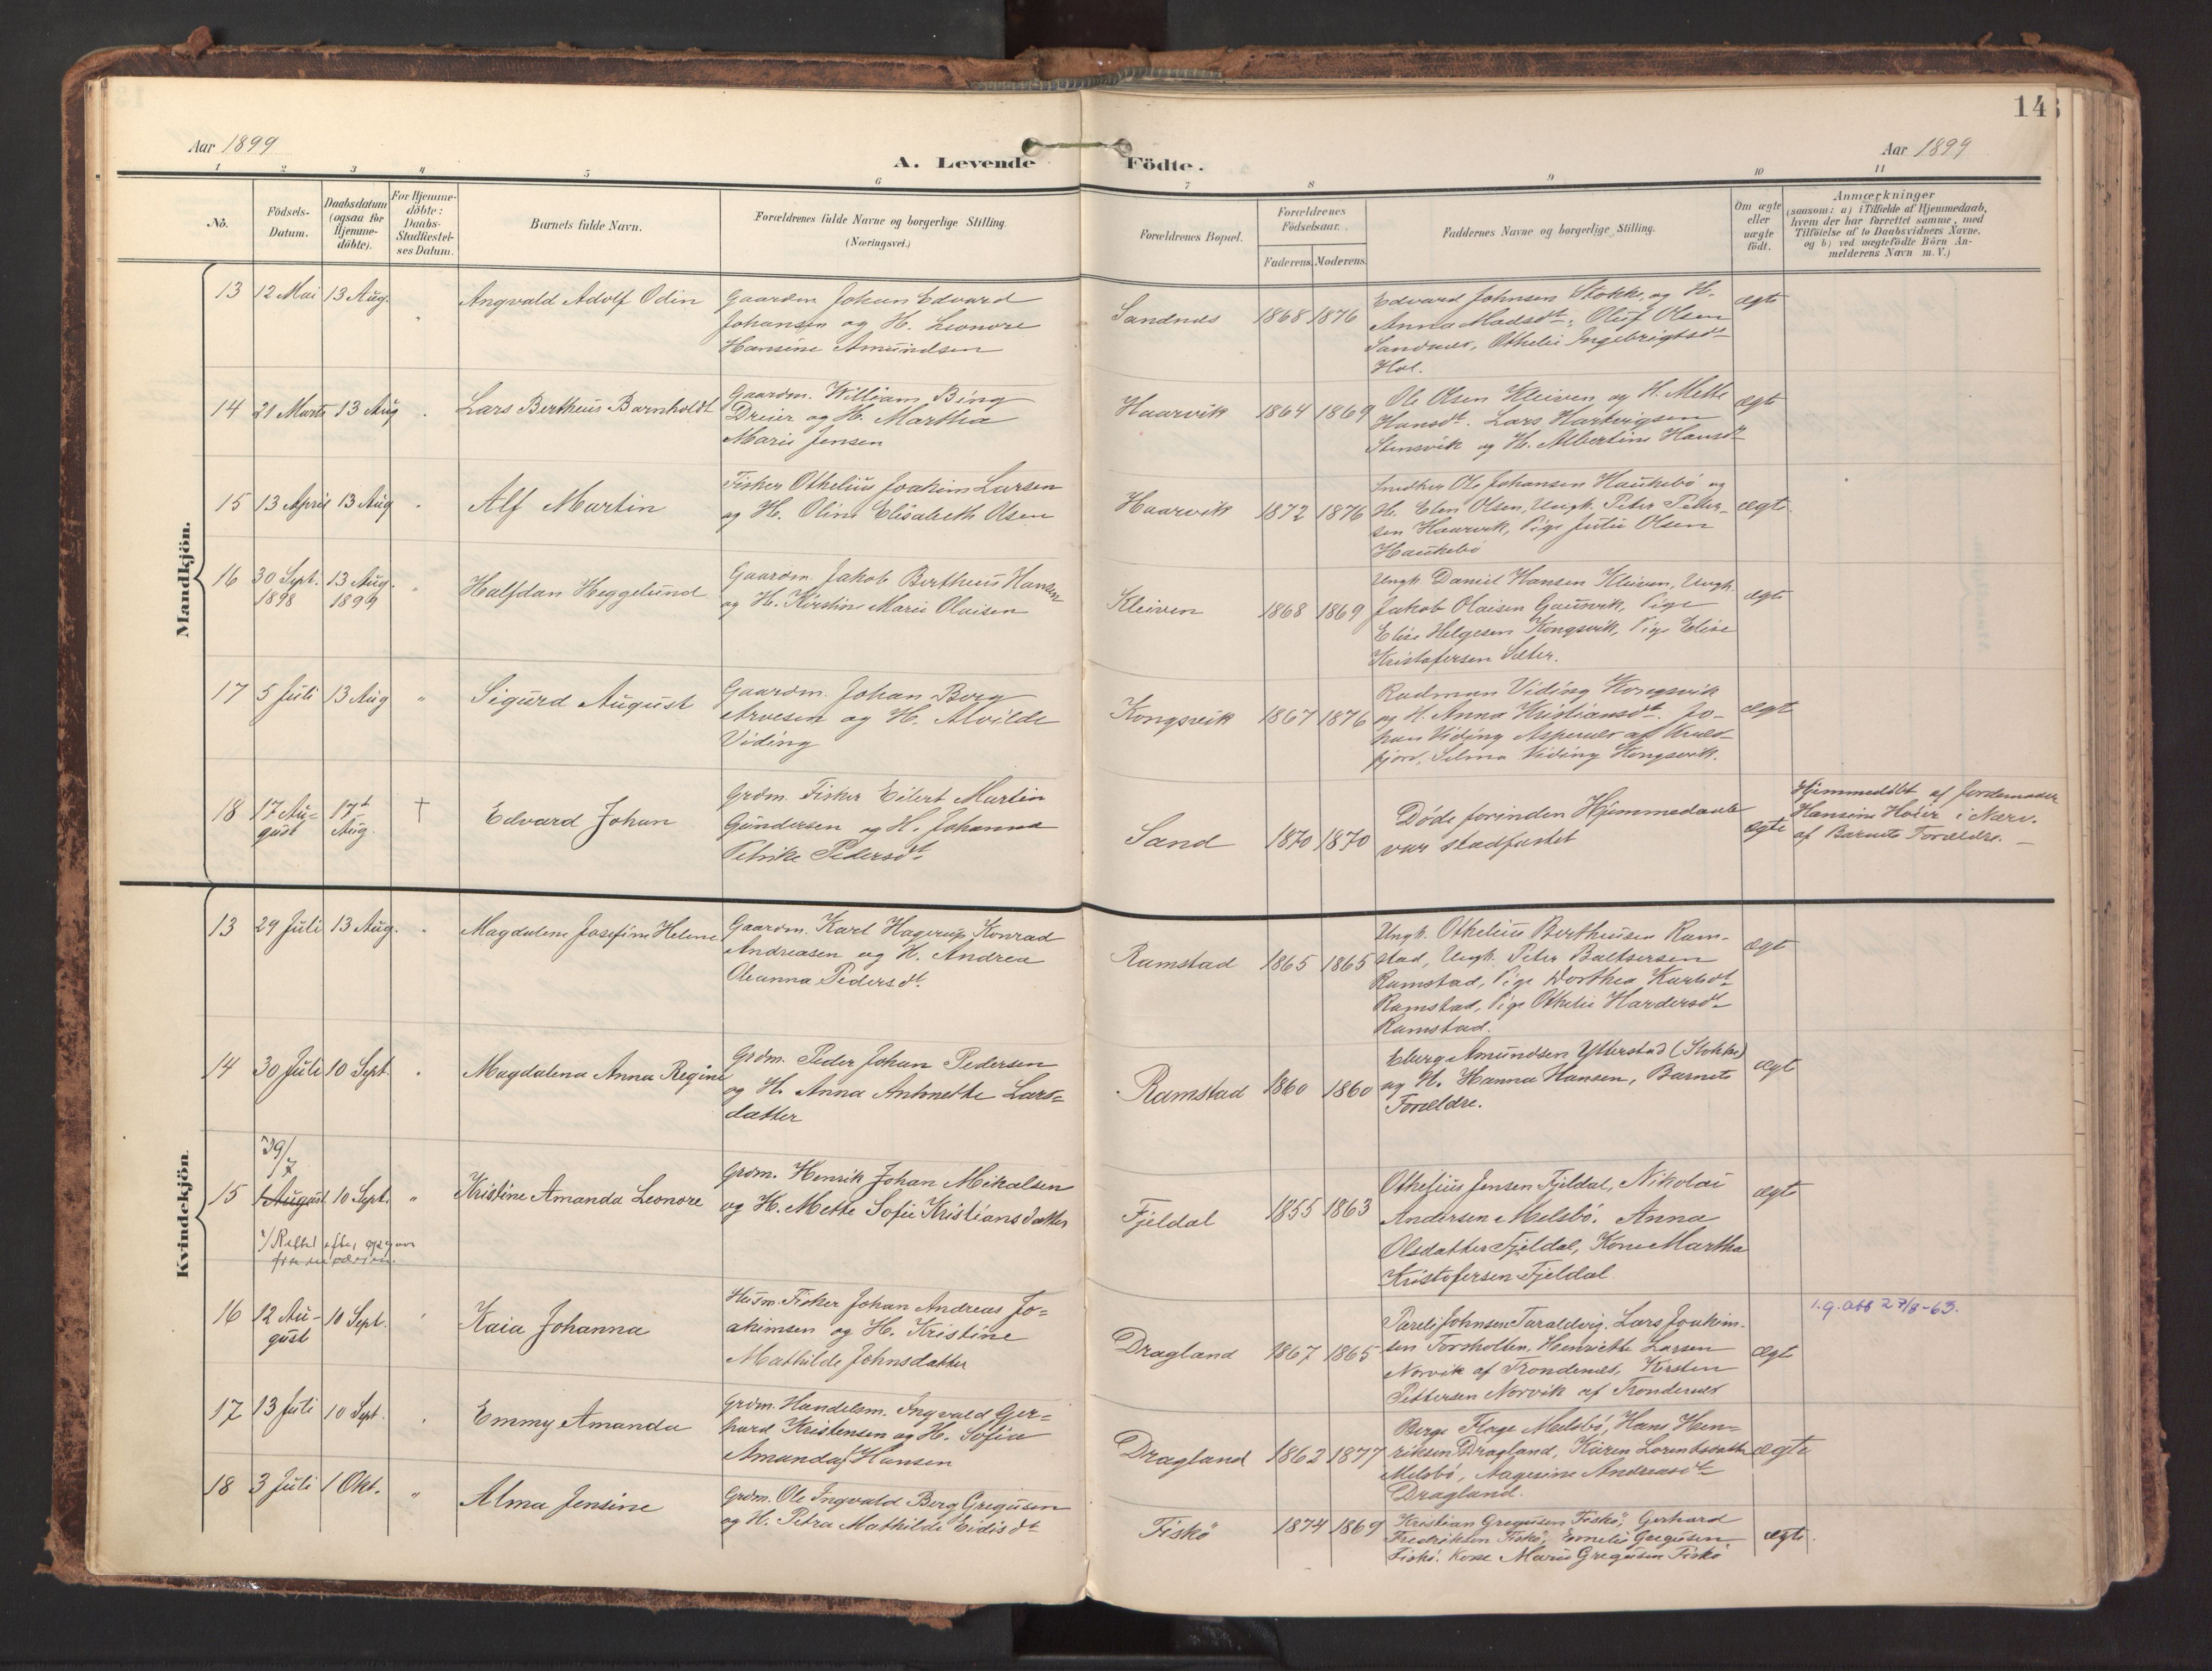 14
Aar 1899
A. Levende Födte.
Aar 1899
1 2 3 4 5 6 7 8 9 10 11
No.
Födsels-
Datum.
Daabsdatum
(ogsaa for
Hjemme-
döbte).
For Hjemme-
döbte:
Daabs-
Stadfæstel-
ses Datum.
Barnets fulde Navn.
Forældrenes fulde Navne og borgerlige Stilling.
(Næringsvei.)
Forældrenes Bopæl.
Forældrenes
Födselsaar.
Faderens. Moderens.
Faddernes Navne og borgerlige Stilling.
Om ægte
eller
uægte
födt.
Anmærkninger
(saasom: a) i Tilfælde af Hjemmedaab,
hvem der har forrettet samme, med
Tilföielse af to Daabsvidners Navne.
og b) ved uægtefödte Börn An-
melderens Navn m. V.)
Mandkjön.
13 12 Mai 13 Aug. Angvald Adolf Odin
Gaardm. Johan Edvard
Johansen og H. Leonore
Hansine Amundsen
Sandnes 1868 1876
Edvard Johnsen Stokke, og H.
Anna Madsdt., Oluf Olsen
Sandnes, Othelie Ingebrigtsdt
Hol.
ægte
14 21 Marts 13 Aug Lars Bertheus Barnholdt
Gaardm. William Bing
Dreier og H. Martha
Marie Jensen
Haarvik 1864 1869
Ole Olsen Kleiven og H. Mette
Hansdt. Lars Hartvigsen
Stensvik og H. Albertine Hansdt
ægte
15 13 April 13 Aug Alf Martin
Fisker Othelius Joakim Larsen
og H. Oline Elisabeth Olsen
Haarvik 1872 1876
Snedker Ole Johansen Haukebö og
H. Elen Olsen, Ungk. Peter Peter-
sen Haarvik, Pige Julie Olsen
Haukebö
ægte
16 30 Sept. 1898 13 Aug. 1899 Halfdan Heggelund
Gaardm. Jakob Bertheus Hansen
og H. Kirstine Marie Olaisen
Kleiven 1868 1869
Ungk. Daniel Hansen Kleiven, Ungk.
Jakob Olaisen Gausvik, Pige
Elise Helgesen Kongsvik, Pige Elise
Kristofersen Sæter.
ægte
17 5 Juli 13 Aug " Sigurd August
Gaardm. Johan Borg
Arvesen og H. Alvilde
Viding
Kongsvik 1867 1876
Radman Viding Kongsvik
og H. Anna Kristiansdt. Jo-
han Viding Aspenes af Kvæd-
fjord, Selma Viding Kongsvik.
ægte
18 17 Au=
gust 17t
Aug. † Edvard Johan
Grdm. Fisker Eilert Martin
Gundersen og H. Johanna
Petrike Pedersdt.
Sand 1870 1870
Døde forinden Hjemmedaab
var stadfæstet
ægte
Hjemmedöbt af Jordemoder
Hansine Hoier i Nærv.
af Barnets Forældre.
Kvindekjön.
13 29 Juli 13 Aug. Magdalene Josefine Helene
Gaardm. Karl Hagerup Konrad
Andreasen og H. Andrea
Oleanna Pedersdt.
Ramstad 1865 1865
Ungk. Othelius Bertheusen Ram-
stad, Ungk. Peter Baltsersen
Ramstad, Pige Dorthea Karlsdt
Ramstad, Pige Othelie Hardersdt
Ramstad.
ægte
14 30 Juli 10 Sept. Magdalena Anna Regine
Grdm. Peder Johan Pedersen
og H. Anna Antonette Lars=
datter
Ramstad 1860 1860
Eberg Amundsen Ytterstad (Stokke)
og H. Hanna Hansen, Barnets
Forældre.
ægte
29/7
15 1 August 10 Sept. " Kristine Amanda Leonore
1/ Rettet efter opgave
fra
Grdm. Henrik Johan Mikalsen
og H. Mette Sofie Kristiansdatter
Fjeldal 1855 1863
Othelius Jensen Fjeldal, Nikolai
Andersen Melsbö, Anna
Olsdatter Fjeldal, Kone Martha
Kristofersen Fjeldal
ægte
16 12 Au-
gust 10 Sept. " Kaia Johanna
Husm. Fisker Johan Andreas Jo=
akimsen og H. Kristine
Mathilde Johnsdatter
Dragland 1867 1865
Pareli Johnsen Taraldvig, Lars Joakim-
sen Forsholten, Henriette Larsen
Norvik af Trondenes, Kirsten
Pettersen Norvik af Trondenes
ægte
1.g. att 27/8-63.
17 13 Juli 10 Sept. Emmy Amanda
Grdm. Handelsm. Ingvald Ger=
hard Kristensen og H. Sofie
Amanda Hansen
Dragland 1862 1877
Berge Melsbö, Hans Hen-
riksen Dragland, Karen Lorentsdatter
Melsbö, Aagesine Andreasdt
Dragland.
ægte
18 3 Juli 1 Okt. " Alma Jensine
Grdm. Ole Ingvald Berg Gregusen
og H. Petra Mathilde Eidisdt
Fiskö 1874 1869
Kristian Gregusen Fiskö, Gerhard
Fredriksen Fiskö, Emelie Gregusen
Fiskö, Kone Marie Gregusen Fiskö
ægte.